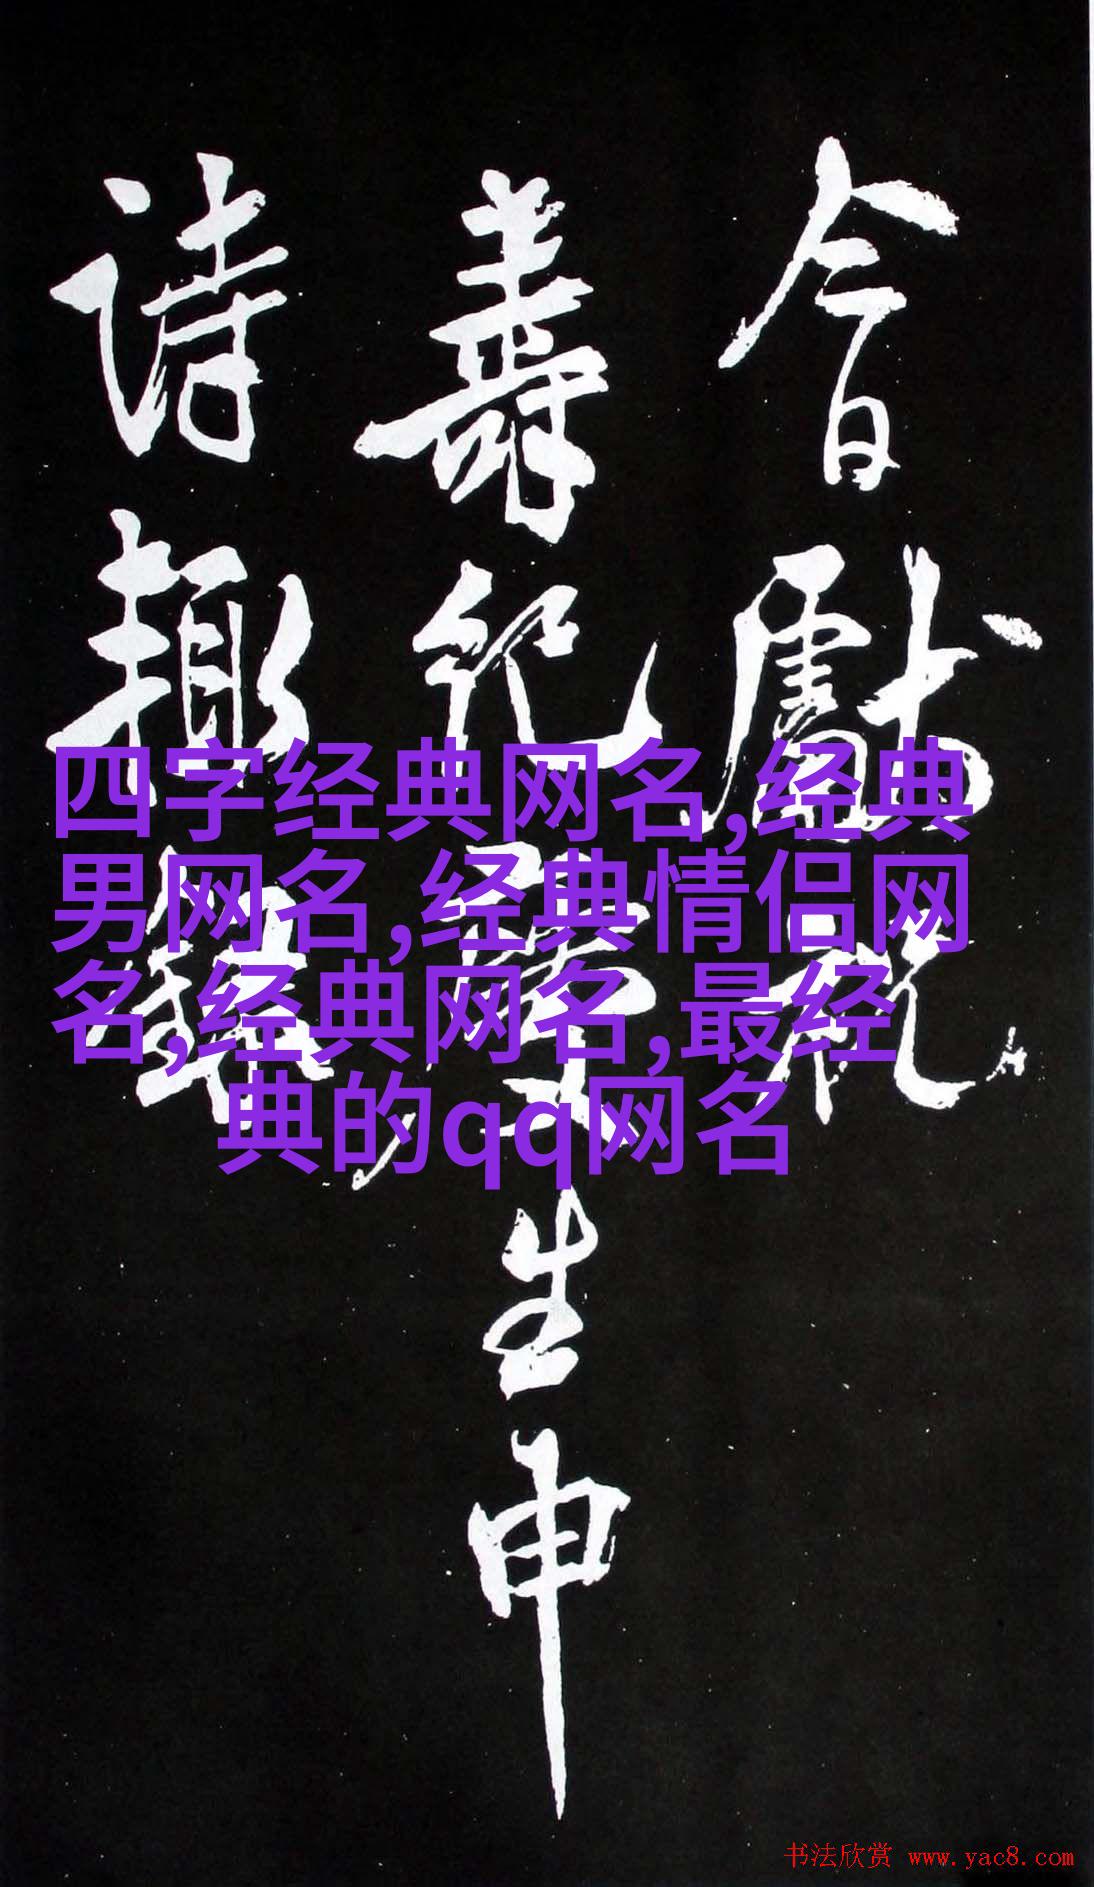 今日獻祝
壽紀生申
詩趣
四字经典网名,经典
男网名,经典情侣网
名,经典网名,最经
典的qq网名
书法欣赏 www.yac8.com